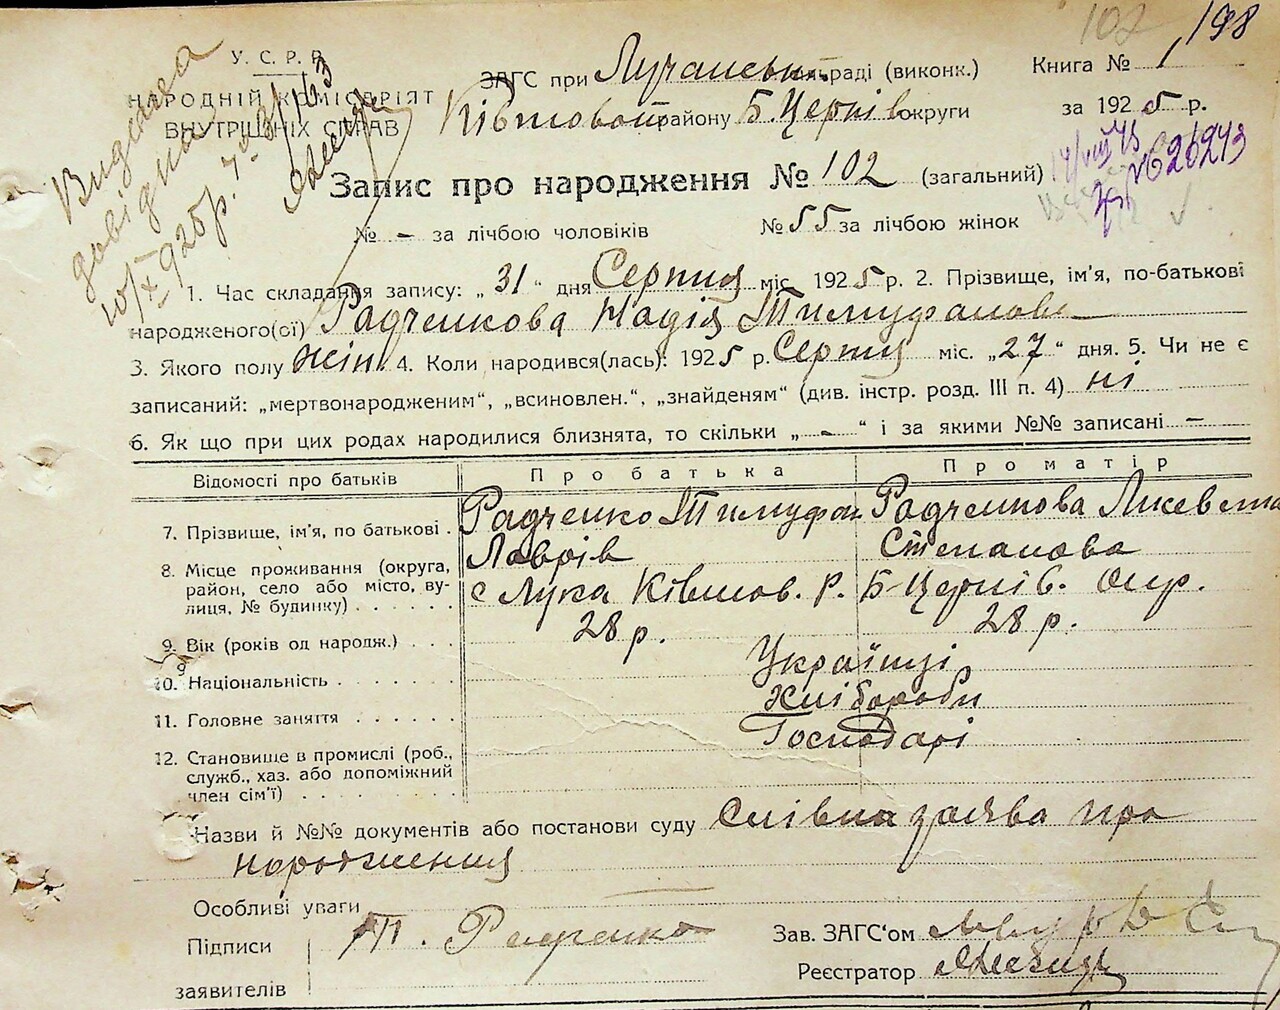 102 198
У. С. Р. Р.
НАРОДНІЙ КОМІСАРІЯТ
ВНУТРІШНІХ СПРАВ
Видана
довідка
10/X 925р.
ЗАГС при Лучанськ. раді (виконк.)
Книга № 1
Ківшоват району Б. Церків округи
за 1925 р.
Запис про народження № 102 (загальний)
№ – за лічбою чоловіків № 55 за лічбою жінок
1. Час складання запису: „31“ дня Серпня міс. 1925 р. 2. Прізвище, ім’я, по-батькові
народженого(ої) Радченкова Надія Тимуфалова
3. Якого полу жін. 4. Коли народився(лась): 1925 р. Серпня міс. „27“ дня. 5. Чи не є
записаний: „мертвонародженим“, „всиновлен.“, „знайденям“ (див. інстр. розд. III п. 4) ні
6. Як що при цих родах народилися близнята, то скільки „ – “ і за якими №№ записані –
Відомості про батьків Про батька Про матір
7. Прізвище, ім’я, по батькові . Радченко Тимуфал Радченкова Лисевета
Лаврів Степанова
8. Місце проживання (округа,
район, село або місто, ву-
лиця, № будинку) . . . . . . с Лука Ківшов. Р. Б-Церків. окр.
9. Вік (років од народж.) . . . 28 р. 28 р.
10. Національність . . . . . . . Українці
11. Головне заняття . . . . . . Хлібороби
12. Становище в промислі (роб., Господарі
служб., хаз. або допоміжний
член сім’ї) . . . . . . . . . .
Назви й №№ документів або постанови суду Слівна заява про
народження
Особливі уваги
Підписи Т. Радченко
заявителів
Зав. ЗАГС‘ом
Реєстратор